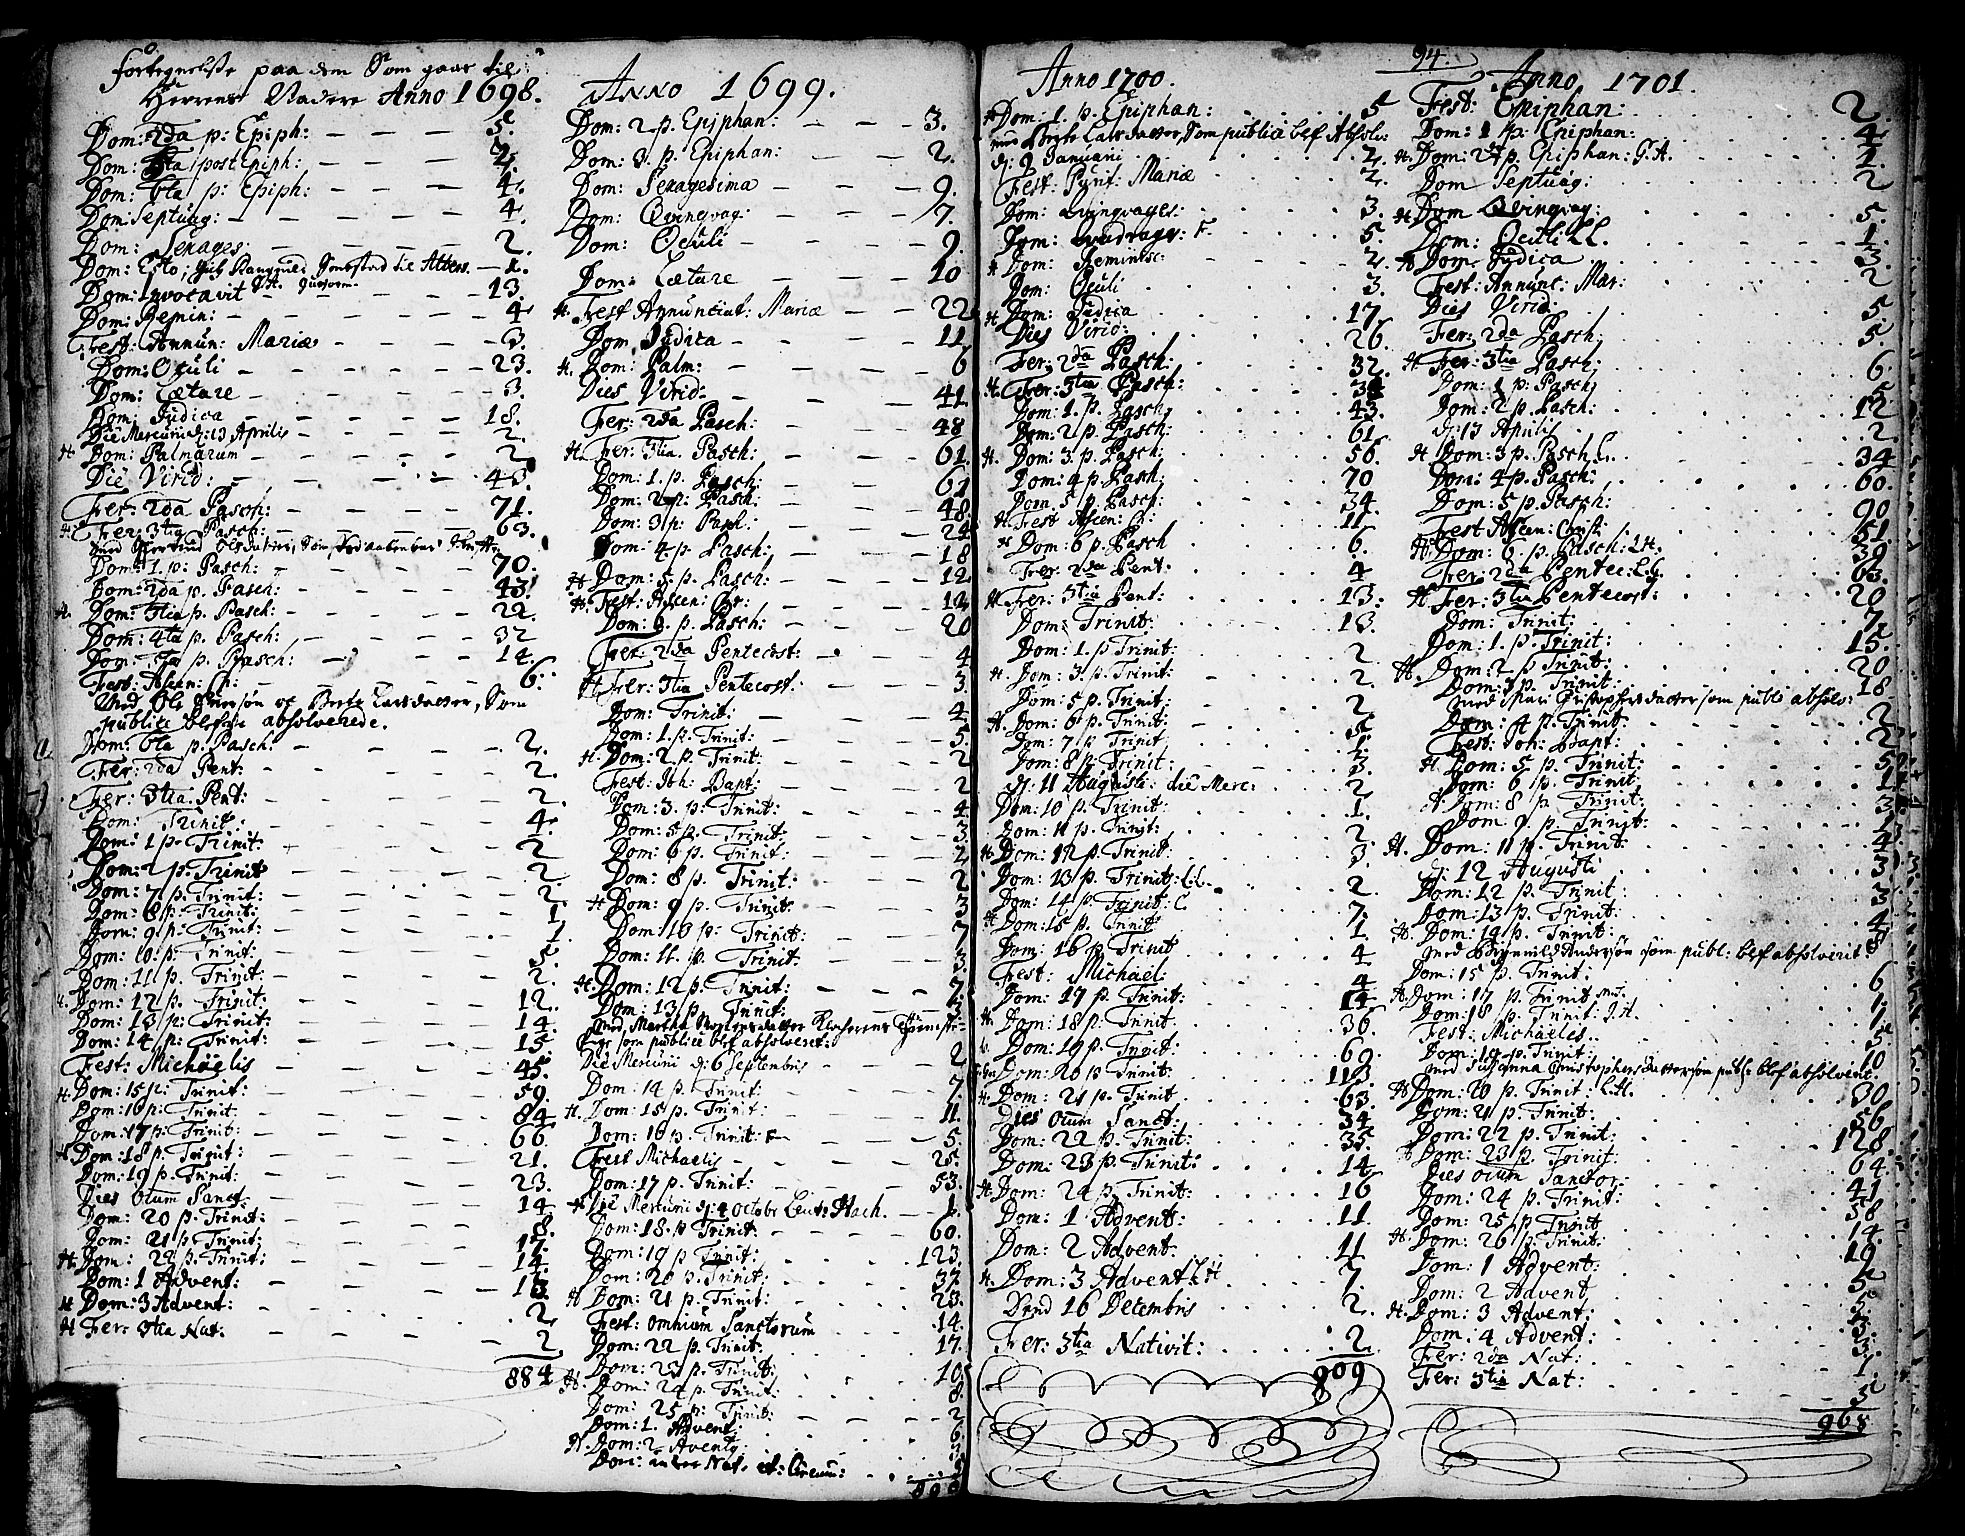 fortegnelse paa dem Som gaar til
Herrens Nadere Anno 1698.
Dom: 3da p: Epiph: 5.
Dom: 5ta post Epiph: 2.
Dom: 6ta p: Epiph: 4.
Dom: Septuag: 4.
Dom: Sexages: 2.
Dom: Esto, til Alters. 1.
Dom: Invocavit 13.
Dom: Remin: 4
Fest: Annun: Mariæ 3.
Dom: Oculi 23.
Dom: Lætare 3.
Dom: Judica 18.
Die Mercurii d: 13 Aprilis 2.
H. Dom: Palmarum 2
Die Virid: 43.
Fer: 2da Pasch: 71.
H. Fer: 3tia Pasch: 63.
med Olsdatter, Som
Dom: 1. p: Pasch: 70.
Dom: 2da p. Pasch: 43
H. Dom: 3tia p. Pasch: 22.
Dom: 4ta p. Pasch: 32
Dom: 5ta p. Pasch: 14.
Fest: Ascen: Ch: 6.
Med Ole Iversøn oc Berte Larsdatter, Som
publice blefve absolverede.
Dom: 6ta p. Pasch: 2.
Fer: 2da Pent: 2.
Fer: 3tia Pent: 2.
Dom: Trinit: 4.
Dom: 1 p: Trinit: 2
Dom: 2 p. Trinit 2.
Dom: 7 p. Trinit: 2.
Dom: 8 p: Trinit: 1
Dom: 9 p: Trinit: 1.
Dom: 10 p: Trinit: 5.
Dom: 11 p. Trinit: 2.
H. Dom: 12 p. Trinit: 12.
Dom: 13 p: Trinit: 14.
Dom: 14 p: Trinit: 15
Fest: Michaëlis 45.
H. Dom: 15 p: Trinit: 59.
Dom: 16 p: Trinit: 84
Dom: 17 p: Trinit: 66.
H Dom: 18 p: Trinit: 21.
Dom: 19 p. Trinit: 23.
Dies Oium Sanct: 14
Dom: 20 p. Trinit: 8.
Dom: 21 p Trinit: 17.
H. Dom: 22 p. Trinit: 14.
Dom: 1 Advent: 13.
H Dom: 3 Advent: 2.
H Fer: 3tia Nat. 2
884

Anno 1699.
Dom: 2 p. Epiphan: 3.
Dom: 3. p. Epiphan: 2.
Dom: Sexagesima 9.
Dom: Qvinqvag: 7.
Dom: Oculi 9.
Dom: Lætare 10
H. Fest Annunciat: Mariæ 22
Dom Judica 11
H. Dom: Palm: 6
Dies Virid: 41
Fer: 2da Pasch: 48
H. Fer: 3tia. Pasch: 61.
Dom: 1. p. Pasch: 61
Dom: 2 p: Pasch: 48
Dom: 3 p: Pasch: 24
Dom: 4. p. Pasch: 18
H Dom: 5. p. Pasch: 12
H. Fest: Ascen: Chr: 12
Dom: 6. p. Pasch: 20
Fer: 2da Pentecost: 4
H Fer: 3tia Pentecost: 3.
Dom: Trinit: 4
Dom: 1. p. Trinit: 5
H. Dom: 2 p. Trinit: 2
Fest: Joh: Bapt: 2
Dom: 3. p. Trinit: 4
Dom: 5 p. Trinit: 3
Dom: 6 p. Trinit: 2
Dom: 8 p. Trinit: 2
H Dom: 9 p. Trinit: 3
Dom: 10 p: Trinit: 7
Dom: 11. p. Trinit: 3.
H. Dom: 12 p. Trinit: 7
Dom: 13 p. Trinit:
Med Martha
som publice blef absolveret:
Die Mercurii d: 6 Septembris 2
Dom: 14 p. Trinit: 7.
H. Dom: 15 p. Trinit: 11.
Dom: 16 p. Trinit: 5.
Fest Michaelis 25.
Dom: 17 p. Trinit: 53.
H Die Mercurii d: 4 Octobr 1.
Dom: 18. p Trinit: 60.
Dom: 19 p Trinit: 123.
Dom: 20 p. Trinit: 37.
H Dom: 21 p. Trinit: 23.
Fest: omnium Sanctorum 14.
Dom: 22 p. Trinit. 17.
Dom: 23 p. Trinit: 10.
H. Dom: 24 p. Trinit: 8.
Dom: 25 p: Trinit: 2
Dom: 1. Advent: 6
H. Dom: 2 Advent:
Dom: inter Nat. et Circum:

Anno 1700.
H Dom: 1. p. Epiphan: 5
med Berte Larsdatter, Som publicè blef Absolv:
d: 2 Januarii 2.
Fest: Purif: Mariæ 2.
Dom: Qvinqvages: 3.
Dom: Qvadrages: 5.
H Dom: Reminisc: 2
Dom: Oculi 3.
H Dom: Judica 17.
Dies Virid: 26.
Fer: 2da Pasch: 32.
H. Fer: 3tia Pasch:
Dom: 1. p. Pasch. 43.
Dom: 2 p. Pasch: 61.
H. Dom: 3. p. Pasch: 56.
Dom: 4 p. Pasch: 70
Dom. 5 p. Pasch: 34.
H Fest Ascen: Ch: 11
H Dom: 6 p. Pasch 6.
Fer: 2da Pent. 4
H Fer: 3tia Pent: 13.
Dom: Trinit: 13.
Dom: 1. p Trinit: 2
H. Dom: 3. p. Trinit: 2.
Dom: 5 p. Trinit: 2
H. Dom: 6 p. Trinit:
Dom: 7 p. Trinit
Dom: 8 p. Trinit: 3.
d: 11 Augusti: die Merc: 2
Dom: 10 p. Trinit: 1.
Dom: 11 p. Trinit: 2
H. Dom: 12 p. Trinit: 3.
Dom: 13 p. Trinit: 2.
Dom: 14 p. Trinit: 7.
H Dom: 15 p. Trinit 1.
Dom: 16 p Trinit 4
Fest: Michael: 4
Dom: 17 p. Trinit: 14
H. Dom: 18 p: Trinit 36.
Dom: 19 p. Trinit: 69.
Dom: 20 p Trinit. 113.
H. Dom: 21 p. Trinit 63.
Dies Oium Sanct: 34
Dom: 22 p. Trinit: 35.
Dom: 23 p. Trinit: 14
H. Dom: 24 p. Trinit: 16
Dom: 1 Advent: 11.
Dom: 2 Advent: 11
H. Dom: 3 Advent 7.
Dend 16 Decembris 2.
Fer: 3tia Nativit: 2.
909

94.
Anno 1701.
Fest: Epiphan: 2.
Dom: 1 p: Epiphan: 4
H. Dom: 2 p. Epiphan:
Dom Septuag: 2
H Dom Qvinqvag: 5.
Dom: Oculi 1.
H Dom. Judica 3.
Fest: Annunc: Mar: 2
Dies Virid:
Fer: 2da Pasch: 5.
H Fer: 3tia Pasch:
Dom: 1 p: Pasch: 6
Dom: 2 p. Pasch: 12
d: 13 Aprilis 2.
H Dom: 3 p. Pasch 34
Dom: 4 p. Pasch: 60.
Dom: 5 p. Pasch: 90
Fest Ascen: Christ: 51.
H. Dom: 6. p. Pasch: 39
Fer: 2da Pentec: 63.
H Fer: 3tia Pentecost: 20
Dom: Trinit: 7.
Dom: 1. p: Trinit: 15.
H. Dom: 2 p Trinit: 20
Dom: 3 p. Trinit: 18
med Christophersdatter som publ: absolv:
Dom: 4 p. Trinit 2
Fest: Joh: Bapt: 2
H Dom: 5 p. Trinit: 5
Dom: 6 p. Trinit 1
Dom: 8 p. Trinit: 3
Dom: 9 p. Trinit:
H. Dom: 11 p. Trinit: 4
d: 12 Augusti 3
Dom: 12 p. Trinit: 3
Dom: 13 p. Trinit: 4
H. Dom: 14 p. Trinit:
med Andersøn som publ: blef absolverit:
Dom: 15 p. Trinit: 6
H. Dom: 17 p. Trinit 1.
Dom: 18 p. Trinit: 1.
Fest: Michaelis. 5
Dom: 19 p. Trinit: 10
med Susanna Christophersdatter som publ: blef absolverit.
H Dom: 20 p. Trinit: 30
Dom: 21 p. Trinit: 56
Dom: 22 p. Trinit: 128.
Dom: 23 p. Trinit: 64.
Dies oium Sanctor: 41
Dom: 24 p. Trinit: 58
Dom: 25 p: Trinit 14.
H. Dom: 26 p: Trinit: 19
Dom: 1 Advent: 5
Dom: 2 Advent:
H. Dom: 3 Advent:
Dom: 4 Advent: 3.
Fer: 2da Nat: 1
Fer: 3tia Nat:
968